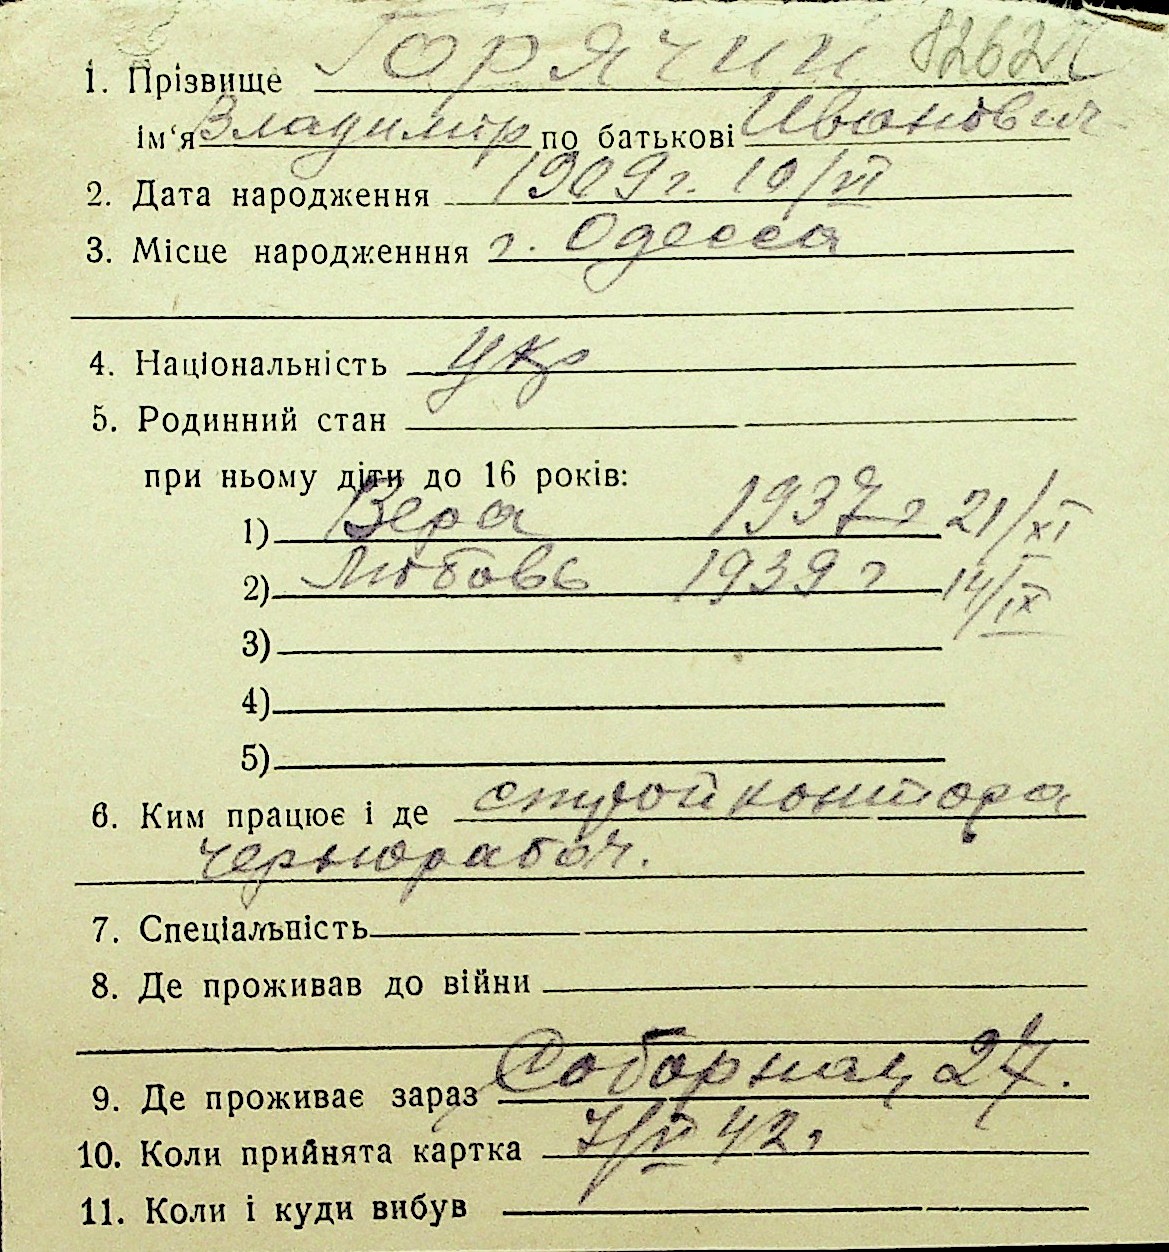 1. Прізвище Горячий
ім‘я Владимир по батькові Иванович
2. Дата народження 1909 г. 10/VI
3. Місце народженння г. Одесса
4. Національність укр
5. Родинний стан
при ньому діти до 16 років:
1) Вера 1937 г 21/XI
2) Любовь 1939 г 14/IX
3)
4)
5)
6. Ким працює і де стройконтора
чернорабоч.
7. Спеціальність
8. Де проживав до війни
9. Де проживає зараз Соборная, 27.
10. Коли прийнята картка 7/VI 42 г
11. Коли і куди вибув